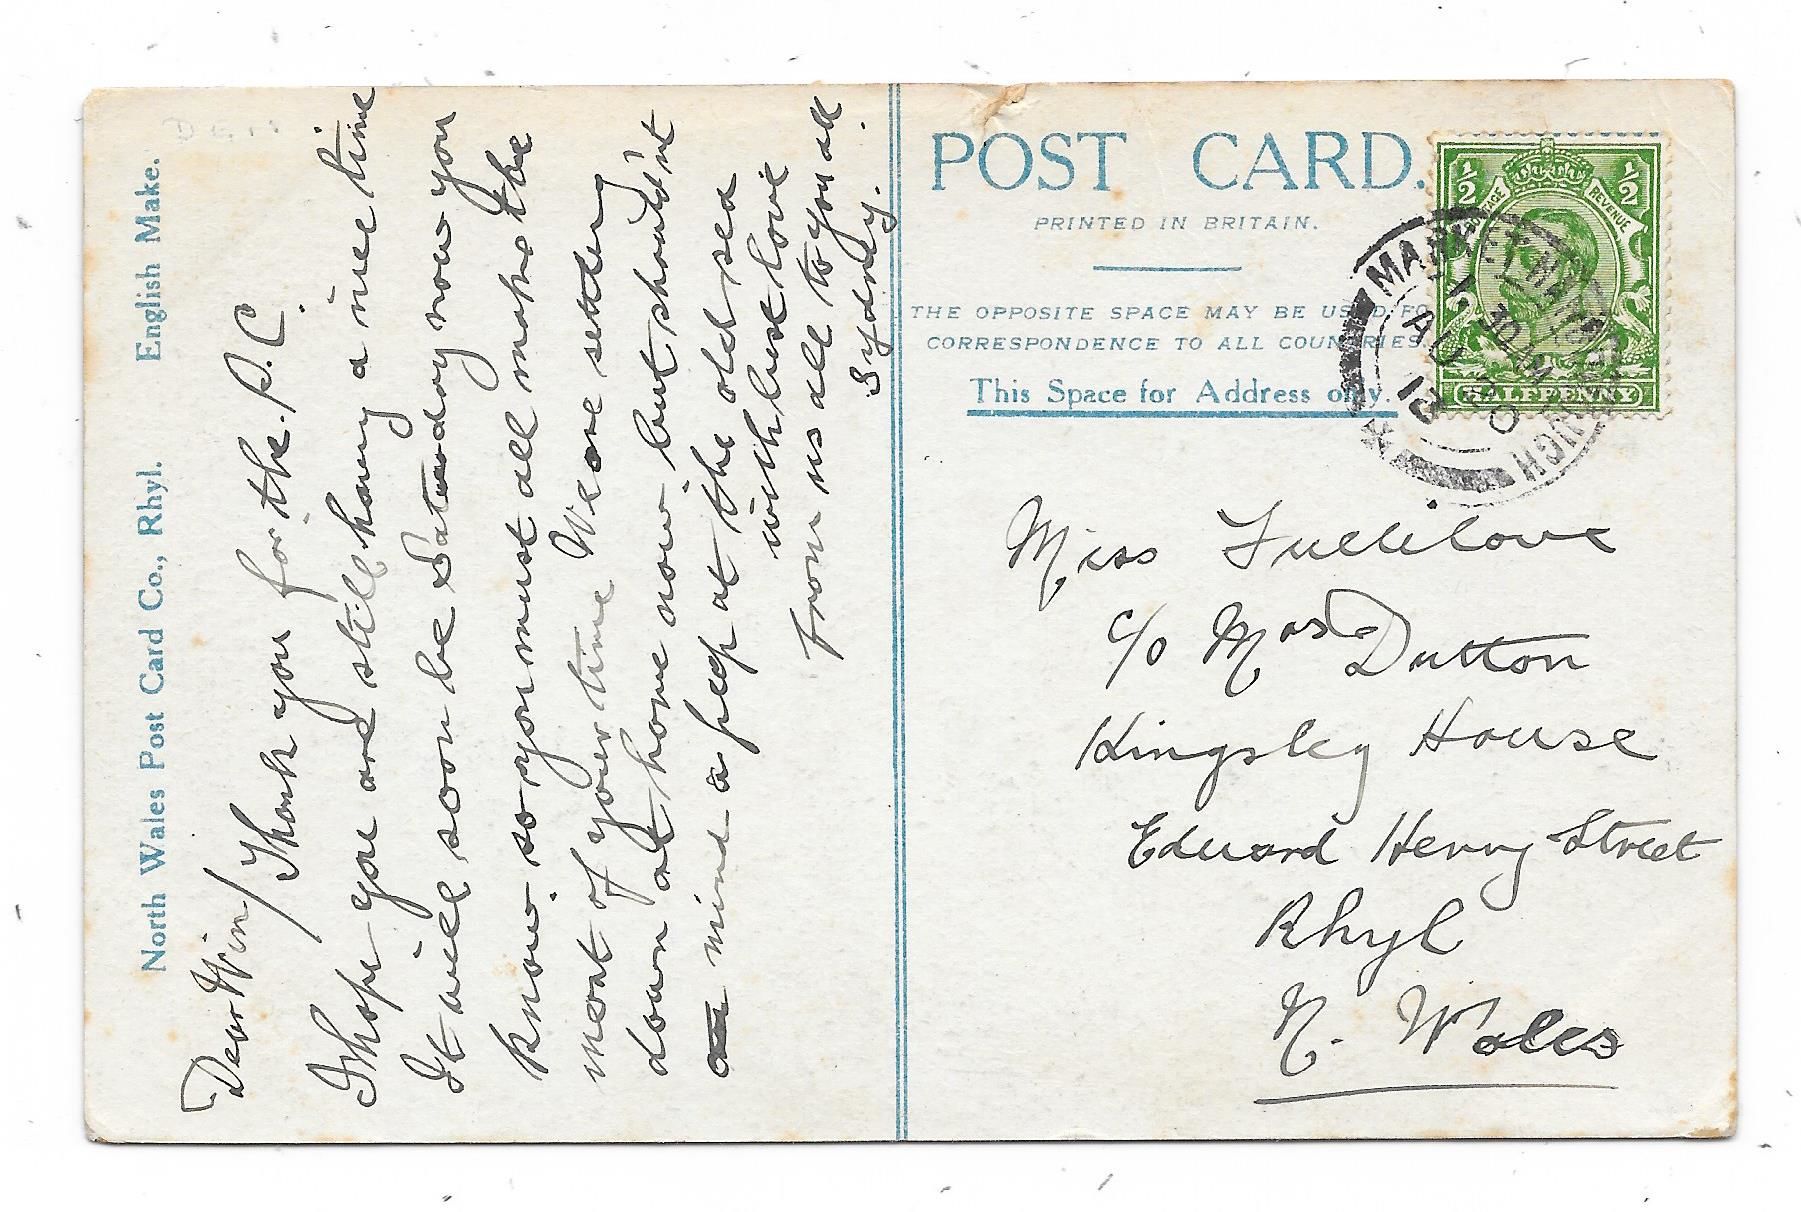 North Wales Post Card Co., Rhyl. English Make.
Dear Win/
Thank you for the P.C.
I hope you are still having a nice time
It will soon be Saturday now you
know. so you must all make the
most of your time We are settling
down at home now. but should'nt
mind a peep at the old sea
with best love
from us all to you all.
Sydney.
POST CARD.
PRINTED IN BRITAIN.
THE OPPOSITE SPACE MAY BE USED FO
CORRESPONDENCE TO ALL COUNTRIES.
This Space for Address only.
½ ½
POSTAGE REVENUE
HALFPENNY
MARKET HARBOROUGH
AU
12
Miss Fullilove
c/o Mrs Dutton
Kingsley House
Edward Henry Street
Rhyl
N. Wales